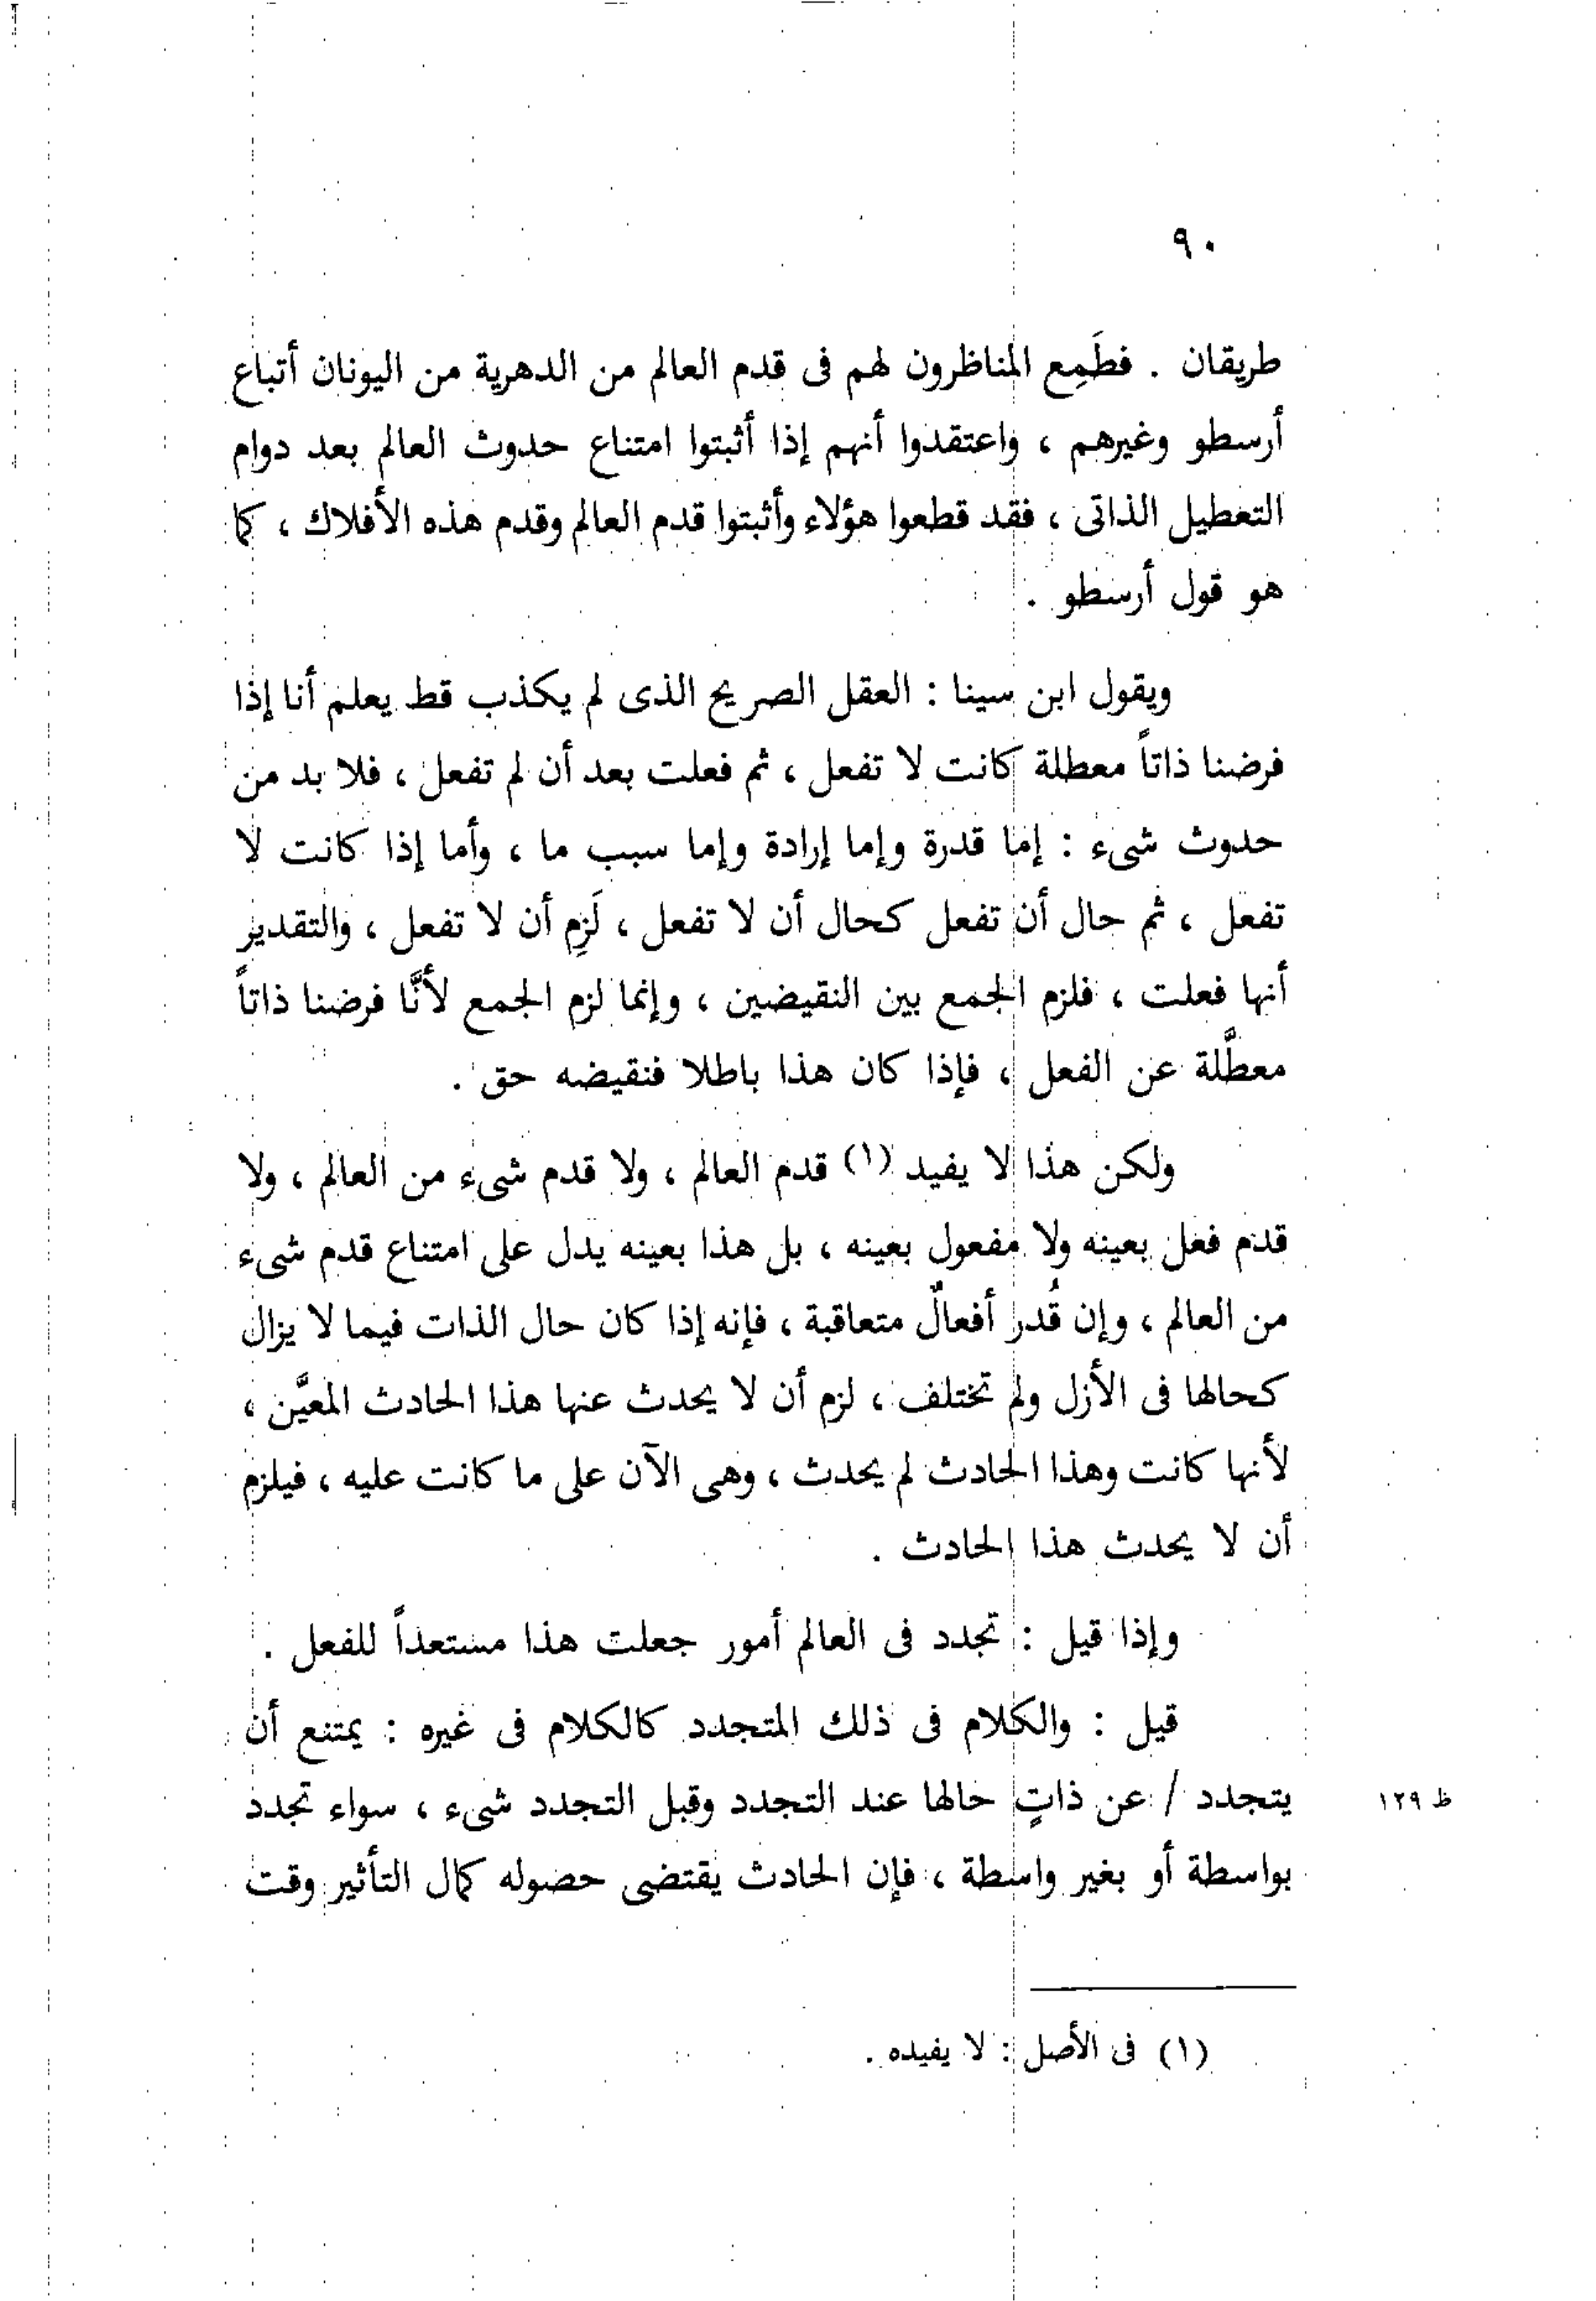 ٩٠
طريقان . فطَمِع المناظرون لهم فى قدم العالم من الدهرية من اليونان أتباع
أرسطو وغيرهم ، واعتقدوا أنهم إذا أثبتوا امتناع حدوث العالم بعد دوام
التعطيل الذاتى ، فقد قطعوا هؤلاء وأثبتوا قدم العالم وقدم هذه الأفلاك ، كما
هو قول أرسطو .
ويقول ابن سينا : العقل الصريح الذى لم يكذب قط يعلم أنا إذا
فرضنا ذاتاً معطلة كانت لا تفعل ، ثم فعلت بعد أن لم تفعل ، فلا بد من
حدوث شىء : إما قدرة وإما إرادة وإما سبب ما ، وأما إذا كانت لا
تفعل ، ثم حال أن تفعل كحال أن لا تفعل ، لَزِم أن لا تفعل ، والتقدير
أنها فعلت ، فلزم الجمع بين النقيضين ، وإنما لزم الجمع لأنَّا فرضنا ذاتاً
معطَّلة عن الفعل ، فإذا كان هذا باطلا فنقيضه حق .
ولكن هذا لا يفيد (١) قدم العالم ، ولا قدم شىء من العالم ، ولا
قدم فعل بعينه ولا مفعول بعينه ، بل هذا بعينه يدل على امتناع قدم شىء
من العالم ، وإن قُدر أفعالٌ متعاقبة ، فإنه إذا كان حال الذات فيما لا يزال
كحالها فى الأزل ولم تختلف ، لزم أن لا يحدث عنها هذا الحادث المعيَّن ،
لأنها كانت وهذا الحادث لم يحدث ، وهى الآن على ما كانت عليه ، فيلزم
أن لا يحدث هذا الحادث .
وإذا قيل : تجدد فى العالم أمور جعلت هذا مستعداً للفعل .
قيل : والكلام فى ذلك المتجدد كالكلام فى غيره : يمتنع أن
يتجدد / عن ذاتٍ حالها عند التجدد وقبل التجدد شىء ، سواء تجدد
ظ ١٢٩
بواسطة أو بغير واسطة ، فإن الحادث يقتضى حصوله كمال التأثير وقت
(١) فى الأصل : لا يفيده .